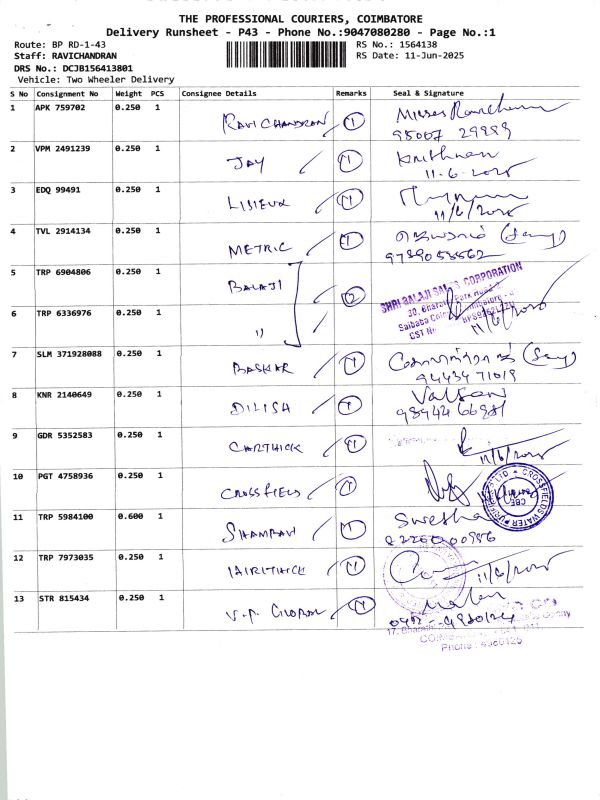 THE PROFESSIONAL COURIERS, COIMBATORE
Delivery Runsheet - P43 - Phone No.:9047080280 - Page No.:1
Route: BP RD-1-43
RS No.: 1564138
Staff: RAVICHANDRAN
RS Date: 11-Jun-2025
DRS No.: DCJB156413801
Vehicle: Two Wheeler Delivery
S No Consignment No Weight PCS Consignee Details Remarks Seal & Signature
1 APK 759702 0.250 1 RAVICHANDRAN 1
95007 29999
2 VPM 2491239 0.250 1 JAY 1 Krithnan
11-6-2025
3 EDQ 99491 0.250 1 LISIEUX 1
11/6/2025
4 TVL 2914134 0.250 1 METRIC 1
9789053562
5 TRP 6904806 0.250 1 BALAJI 2
SHRI BALAJI SALES CORPORATION
30, Bharat Park Road
Saibaba Colony
GST No
11/6/2025
6 TRP 6336976 0.250 1 "
7 SLM 371928088 0.250 1 BASKAR 1
94434 71019
8 KNR 2140649 0.250 1 DILISH 1 Valson
98944 66981
9 GDR 5352583 0.250 1 CARTHICK 1
11/6/2025
10 PGT 4758936 0.250 1 CROSSFIELD 1
CROSSFIELDS WATER
CBE
11 TRP 5984100 0.600 1 1 Swetha
12 TRP 7973035 0.250 1 1
11/6/2025
13 STR 815434 0.250 1 1
17, Bharathi
Phone :